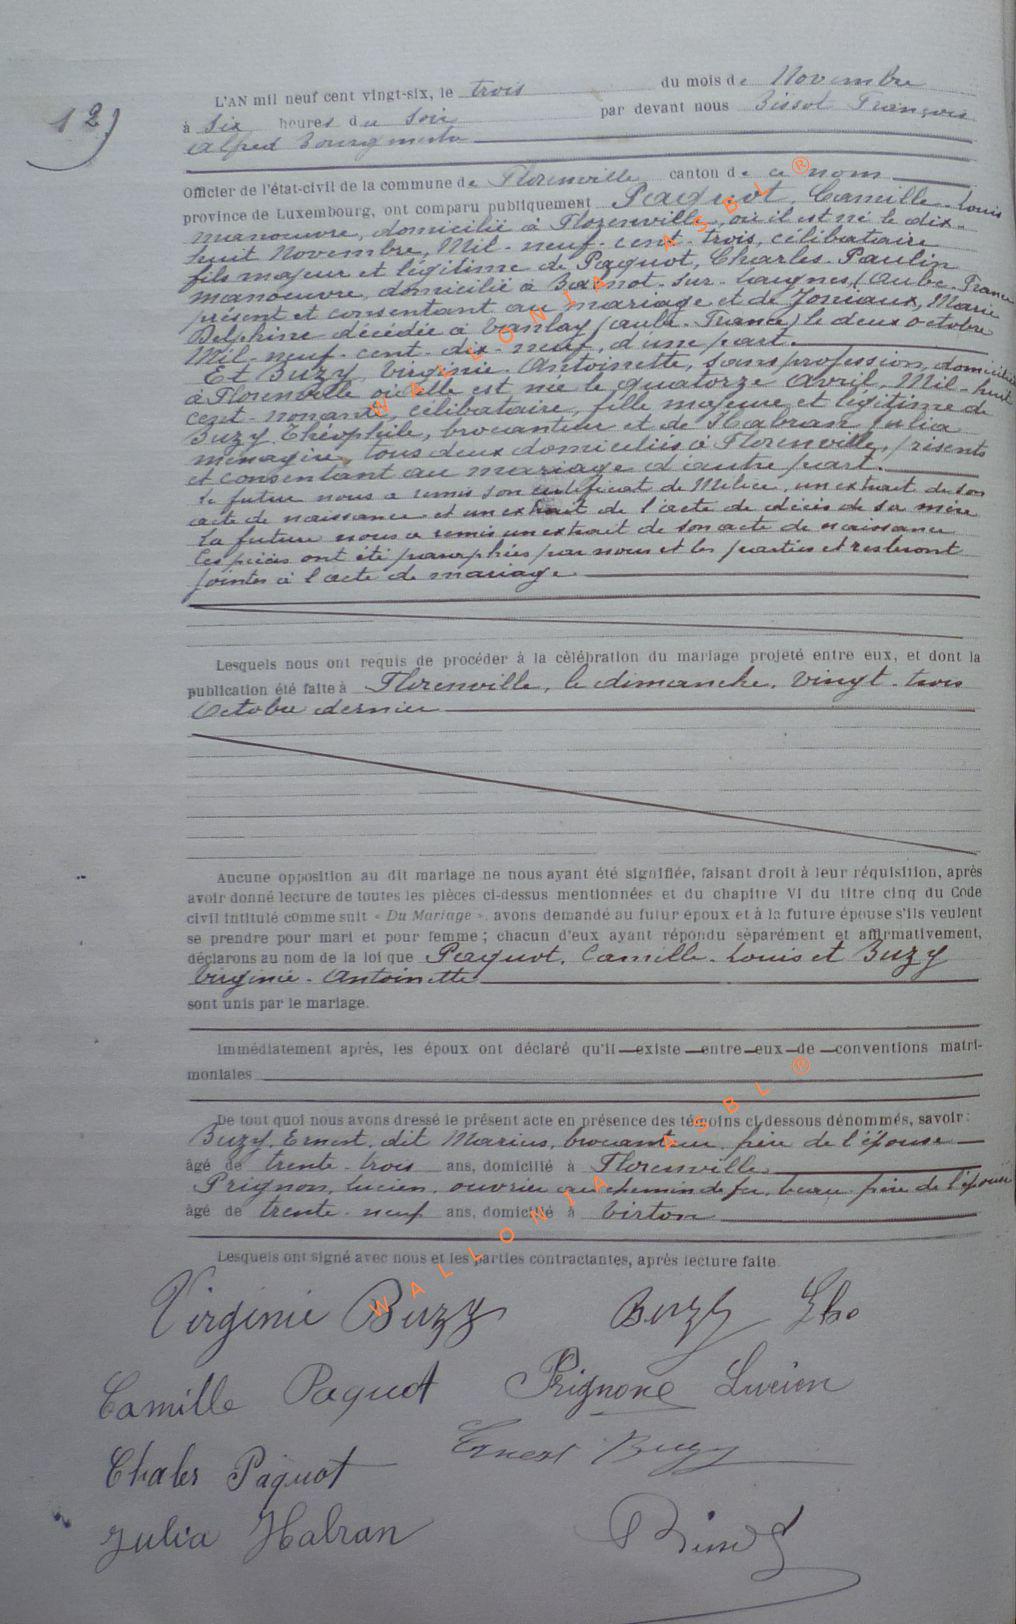 12)
L'AN mil neuf cent vingt-six, le trois du mois de Novembre
à six heures du soir par devant nous Bissot François
Alfred Bourgmestre
Officier de l'état-civil de la commune de Florenville canton de ce nom
province de Luxembourg, ont comparu publiquement Paquot, Camille-Louis
manoeuvre, domicilié à Florenville, où il est né le dix-
huit Novembre, Mil-neuf-cent-trois, célibataire
fils majeur et légitime de Paquot, Charles-Paulin
manoeuvre, domicilié à Bagnot-sur-Laignes, (Aube-France
présent et consentant au mariage et de Joniaux, Marie
Delphine décédée à Vanlay (Aube-France) le deux octobre
Mil-neuf-cent-dix-neuf, d'une part.
Et Buzy, Virginie-Antoinette, sans profession, domiciliée
à Florenville où elle est née le quatorze Avril, Mil-huit
cent-nonante, célibataire, fille majeure et légitime de
Buzy Théophile, brocanteur et de Habran Julia
ménagère, tous deux domiciliés à Florenville, présents
et consentant au mariage d'autre part.
Le futur nous a remis son certificat de Milice, un extrait de son
acte de naissance et un extrait de l'acte de décès de sa mère
La future nous a remis un extrait de son acte de naissance
Ces pièces ont été paraphées par nous et les parties et resteront
jointes à l'acte de mariage.
Lesquels nous ont requis de procéder à la célébration du mariage projeté entre eux, et dont la
publication été faite à Florenville, le dimanche, vingt-trois
Octobre dernier
Aucune opposition au dit mariage ne nous ayant été signifiée, faisant droit à leur réquisition, après
avoir donné lecture de toutes les pièces ci-dessus mentionnées et du chapitre VI du titre cinq du Code
civil intitulé comme suit « Du Mariage », avons demandé au futur époux et à la future épouse s'ils veulent
se prendre pour mari et pour femme ; chacun d'eux ayant répondu séparément et affirmativement,
déclarons au nom de la loi que Paquot, Camille-Louis et Buzy
Virginie-Antoinette
sont unis par le mariage.
Immédiatement après, les époux ont déclaré qu'il existe entre eux de conventions matri-
moniales
De tout quoi nous avons dressé le présent acte en présence des témoins ci-dessous dénommés, savoir :
Buzy, Ernest, dit Marius, brocanteur, frère de l'épouse
âgé de trente-trois ans, domicilié à Florenville
Prignon, Lucien, ouvrier au chemin de fer, beau-frère de l'épouse
âgé de trente-neuf ans, domicilié à Virton
Lesquels ont signé avec nous et les parties contractantes, après lecture faite.
Virginie Buzy Buzy Tho
Camille Paquot Prignone Lucien
Ernest Buzy
Chales Paquot
Julia Habran
WALLONIA ASBL ®
WALLONIA ASBL ®